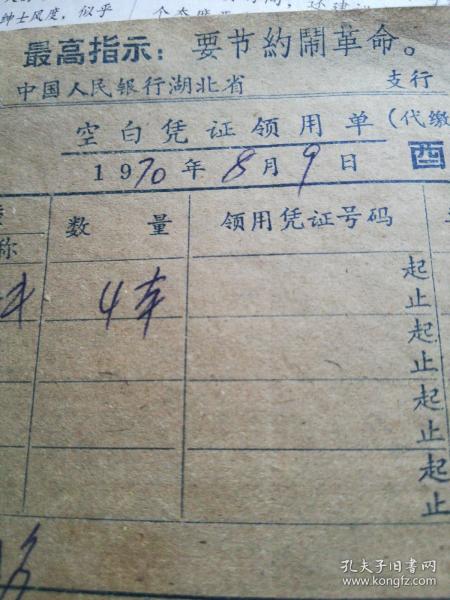 绅士风度，似乎
最高指示：要节約鬧革命。
中国人民银行湖北省 支行
空白凭证领用单（代缴
1970年8月9日
西
称 数量 领用凭证号码
4本 起
止
起
止
起
止
起
止
孔夫子旧书网
www.kongfz.com